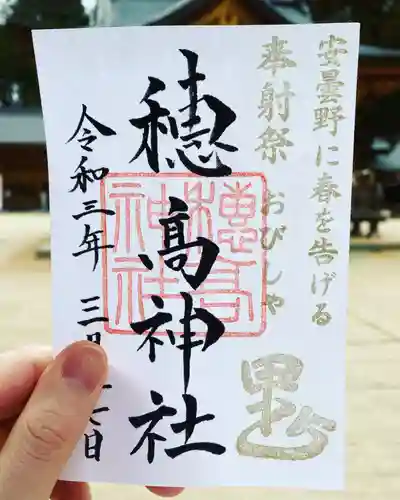 安曇野に春を告げる
奉射祭 おびしゃ
穂高神社
穂高神社
令和三年 三月 日